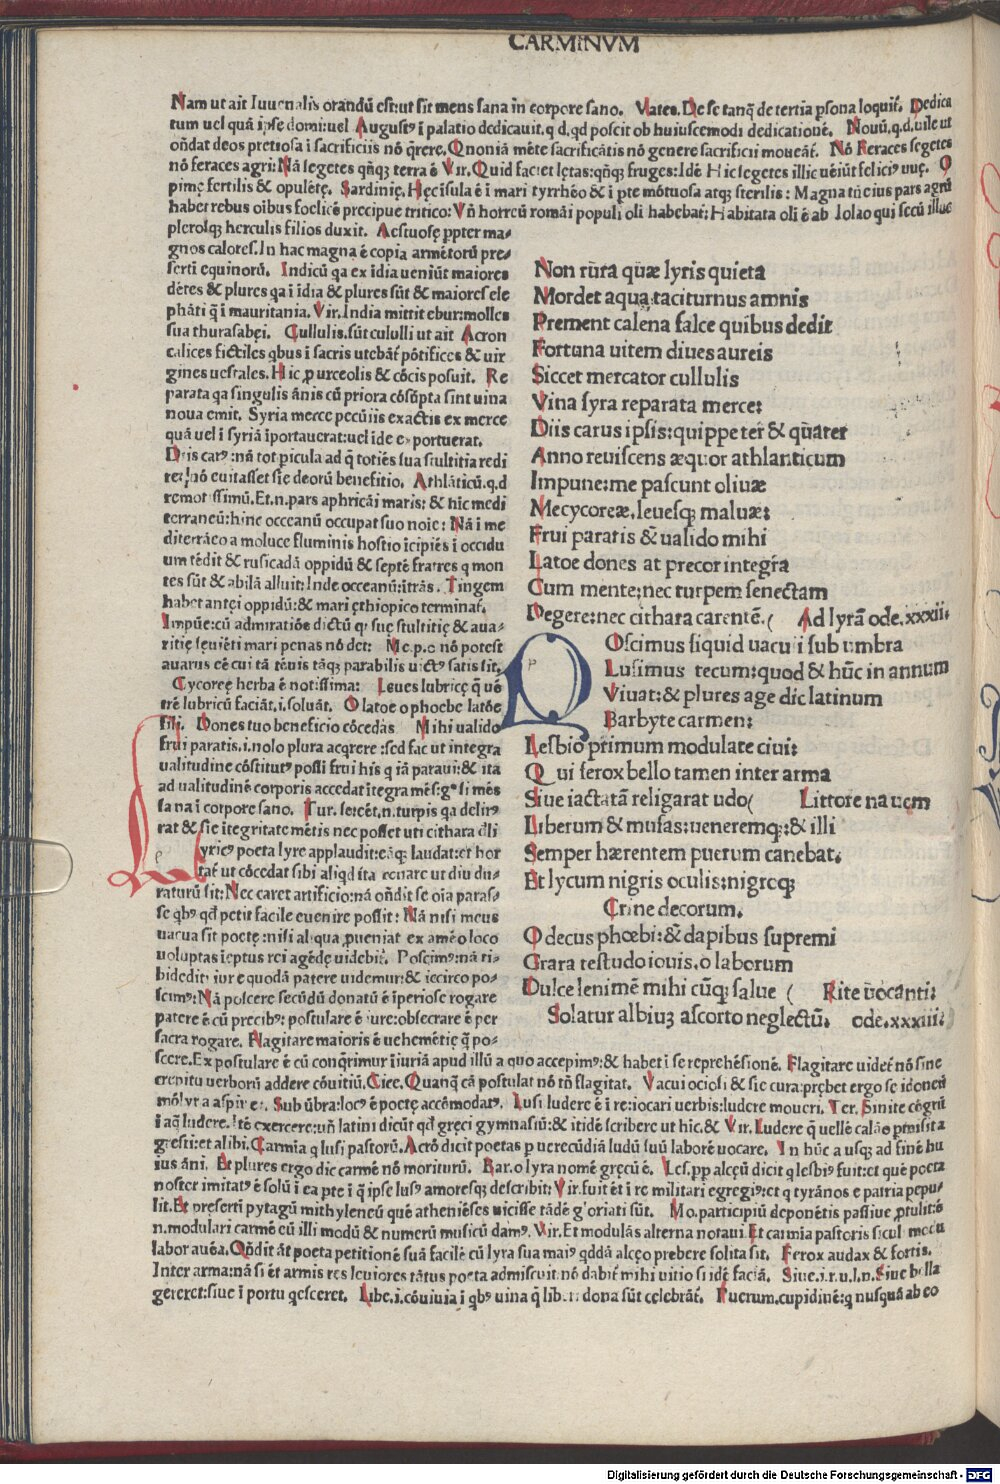 CARMINVM
Nam ut ait Iuuenalis orandũ est:ut sit mens sana in corpore sano. Vates. De se tanq̃ de tertia psona loquit̃. Dedica
tum uel quã ipse domi:uel August⁹ ĩ palatio dedicauit. q.d. qd poscit ob huiuscemodi dedicationẽ. Nouũ, q.d. uile ut
oñdat deos pretiosa ĩ sacrificiis nõ q̃rere. Qnoniã mẽte sacrificãtis nõ genere sacrificii moueãt̃. Nõ Feraces segetes
nõ feraces agri: Nã segetes qñqȝ terra ẽ Vir. Quid faciet lętas: qñqȝ fruges: Idẽ Hic segetes illic ueniũt felici⁹ uuę. O
pimę fertilis & opulẽtę. Sardinię, Hęc ĩsula ẽ ĩ mari tyrrhẽo & ĩ pte mõtuosa atqȝ sterilis: Magna tñ eius pars agrũ
habet rebus oibus foelicẽ precipue tritico: Vñ horreũ romãi populi oli habebat̃: Habitata oli ẽ ab Iolao qui secũ illuc
plerosqȝ herculis filios duxit. Aestuosę ppter ma-
gnos calores. In hac magna ẽ copia armẽtorũ pre-
sertĩ equinorũ. Indicũ qa ex ĩdia ueniũt maiores
dẽtes & plures qa ĩ ĩdia & plures sũt & maiores ele
phãti q̃ ĩ mauritania. Vir. India mittit ebur:molles
sua thura sabęi. Cullulis. sũt cululli ut ait Acron
calices fictiles qbus ĩ sacris utebãt̃ põtifices & uir
gines uestales. Hic p urceolis & cõcis posuit. Re
parata qa singulis ãnis cũ priora cõsũpta sint uina
noua emit. Syria merce pecũiis exactis ex merce
quã uel ĩ syriã ĩportauerat:uel ĩde exportuerat.
Diis car⁹: nã tot picula ad q̃ totiẽs sua stultitia redi
ret: nõ euitasset sie deorũ benefitio. Athlãticũ. q.d
remotissimũ. Et.n. pars aphricãi maris: & hic medi
terraneũ: hinc occeanũ occupat suo noĩe: Nã ĩ me
diterrãeo a moluce fluminis hostio ĩcipiẽs ĩ occidu
um tẽdit & rusicadã oppidũ & septẽ fratres q mon
tes sũt & abilã alluit: Inde occeanũ: ĩtrãs. Tingem
habet antęi oppidũ: & mari ęthiopico terminat̃.
Impũe: cũ admiratiõe dictũ q̃si suę stultitię & aua-
ritię seuiẽti mari penas nõ det: Me. p. o nõ potest
auarus eẽ cui tã tẽuis tãqȝ parabilis uict⁹ satis sit.
Cycoreę herba ẽ notissima: Leues lubricę q̃ uẽ
trẽ lubricũ faciãt. i. soluãt. O latoe o phoebe latõe
fili. Dones tuo beneficio cõcedas Mihi ualido
frui paratis. i. nolo plura acq̃rere: sed fac ut integra
ualitudine cõstitut⁹ possĩ frui his q iã paraui: & ita
ad ualitudinẽ corporis accedat ĩtegra mẽs: si mẽs
sana ĩ corpore sano. Tur. senect. n. turpis qa delir⁹
rat & sie ĩtegritate mẽtis nec posset uti cithara q̃li
lyric⁹ poeta lyre applaudit: eãqȝ laudat: et hor
tat̃ ut cõcedat sibi aliqd ĩta cenare ut diu du-
raturũ sit: Nec caret artificio: nã oñdit se oia paras-
se qb⁹ qd petit facile euenire possit: Nã nisi meus
uacua sit poetę: nisi aliqua pueniat ex amẽo loco
uoluptas ĩeptus rei agẽdę uidebit̃. Poscim⁹: nã ti-
bi dedit iure quodã patere uidemur: & iccirco po-
scim⁹: Nã poscere secũdũ donatũ ẽ ĩperiose rogare
patere ẽ cũ precib⁹: postulare ẽ iure: obsecrare ẽ per
sacra rogare. Flagitare maioris ẽ uehemẽtię q̃ po-
scere. Expostulare ẽ cũ conq̃rimur ĩiuriã apud illũ a quo accepim⁹: & habet ĩ se reprehẽsionẽ. Flagitare uidet̃ nõ sine
crepitu uerborũ addere cõuitiũ. Cice. Quanq̃ eã postulat nõ tñ flagitat. Vacui ociosi & sie cura: prębet ergo se idoneũ
Sub ũbra: loc⁹ ẽ poetę accõmodat⁹. Lusi ludere ẽ ĩ re: iocari uerbis: ludere moueri. Ter. Sinite cõgrũ
ĩ aq̃ ludere. Itẽ exercere: uñ latini dicũt qd gręci gymnasiũ: & itidẽ scribere ut hic. & Vir. Ludere q̃ uellẽ calão pmisit a
gresti: et alibi. Carmĩa q lusi pastorũ. Acrõ dicit poetas p uerecũdiã ludũ suũ laborẽ uocare. In hũc a usqȝ ad finẽ hu
ius ãni. Et plures ergo dic carmẽ nõ moriturũ. Bar. o lyra nomẽ gręcũ ẽ. Les. pp alcęũ dicit q lesbi⁹ fuit: et quẽ poeta
noster imitat⁹ ẽ solũ ĩ ea pte ĩ q̃ ipse lus⁹ amoresqȝ describit: Vir. fuit et ĩ re militari egregi⁹: et q tyrãnos e patria pepu-
lit. Et presertĩ pytagũ mithyleneũ quẽ atheniẽses uicisse tãdẽ g'oriati sũt. Mo. participiũ deponẽtis passiue ptulit: õ
n. modulari carmẽ cũ illi modũ & numerũ musicũ dam⁹. Vir. Et modulãs alterna notaui. Et carmĩa pastoris siculi modu
labor auẽa. Oñdit ãt poeta petitionẽ suã facilẽ cũ lyra sua mai⁹ qddã alcęo prebere solita sit. Ferox audax & fortis.
Inter arma: nã si et armis res leuiores tãtus poeta admiscuit: nõ dabit̃ mihi uitio si idẽ faciã. Siue. i. r. u. l. n. Siue bella
gereret: siue ĩ portu q̃esceret. Libe. i. cõuiuia ĩ qb⁹ uina q̃ liberi dona sũt celebrãt̃. Puerum. cupidinẽ: q nusquã ab eo
Non rura quæ lyris quieta
Mordet aqua taciturnus amnis
Prement calena falce quibus dedit
Fortuna uitem diues aureis
Siccet mercator cullulis
Vina syra reparata merce:
Diis carus ipsis: quippe ter & quater
Anno reuiscens æquor athlanticum
Impune: me pascunt oliuæ
Me cycoreæ, leuesqȝ maluæ:
Frui paratis & ualido mihi
Latoe dones at precor integra
Cum mente: nec turpem senectam
Degere: nec cithara carentẽ. ( Ad lyrã ode. xxxii.
POscimus siquid uacui sub umbra
Lusimus tecum: quod & hũc in annum
Viuat: & plures age dic latinum
Barbyte carmen:
Lesbio primum modulate ciui:
Qui ferox bello tamen inter arma
Siue iactatã religarat udo ( Littore nauem
Liberum & musas: ueneremqȝ: & illi
Semper hærentem puerum canebat.
Et lycum nigris oculis: nigroqȝ
Crine decorum.
O decus phœbi: & dapibus supremi
Grata testudo iouis. o laborum
Dulce lenimẽ mihi cũqȝ salue ( Rite uocanti:
Solatur albiuȝ ascorto neglectũ. ode. xxxiii.
Digitalisierung gefördert durch die Deutsche Forschungsgemeinschaft - DFG